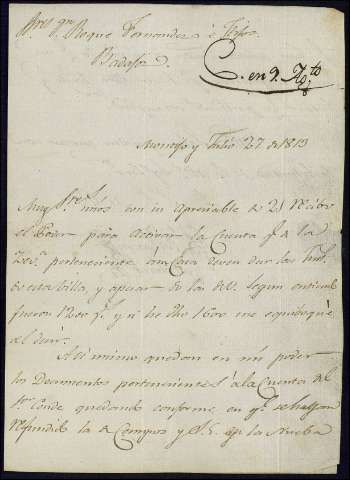 Sres. Dn. Roque Fernandez é Hijos.
Badajoz.
C. en 9. Agto
Monesto y Julio 27 de 1813
Muy Sres. mios con su apreciable de 21 recibo
el Poder para activar la Cuenta q. de la
pertenecientes á su Casa deven dar las
de esta villa, y apesar de las de V. segun entiendo
fueron 1200 y si he dho 1600 me equivoqué
al decir.
Asi mismo quedan en mi poder
los Documentos pertenecientes á la Cuenta del
Sr. Conde quedando conforme en q. se hallan
refundido la de Compros y la Nueba